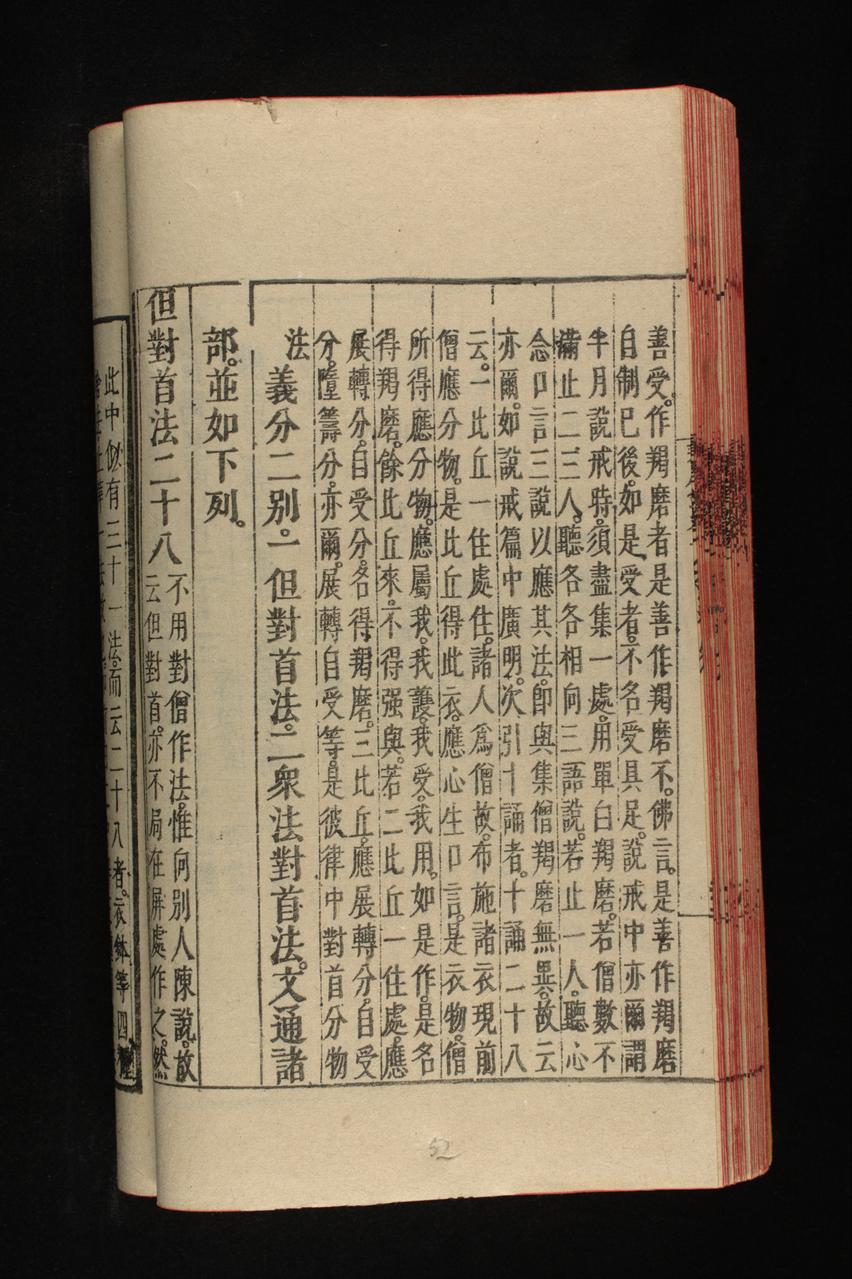 善受。作羯磨者是善作羯磨不。佛言。是善作羯磨
自制已後。如是受者。不名受具足。說戒中亦爾。謂
半月說戒時。須盡集一處。用單白羯磨。若僧數不
滿止二三人。聽各各相向三語說。若止一人。聽心
念口言三說以應其法。即與集僧羯磨無異。故云
亦爾。如說戒篇中廣明。次引十誦者。十誦二十八
云。一比丘一住處住。諸人爲僧故。布施諸衣現前
僧應分物。是比丘得此衣。應心生口言。是衣物。僧
所得應分物。應屬我。我護。我受。我用。如是作。是名
得羯磨。餘比丘來。不得强與。若二比丘一住處。應
展轉分。自受分。各得羯磨。三比丘。應展轉分。自受
分。墮籌分。亦爾。展轉自受等。是彼律中對首分物
法
義分二別。一但對首法。二衆法對首法。文通諸
部。並如下列。
但對首法二十八
不用對僧作法。惟向別人陳說。故
云但對首。亦不局在屏處作之。然
此中似有三十一法。而云二十八者。衣鉢等四
52